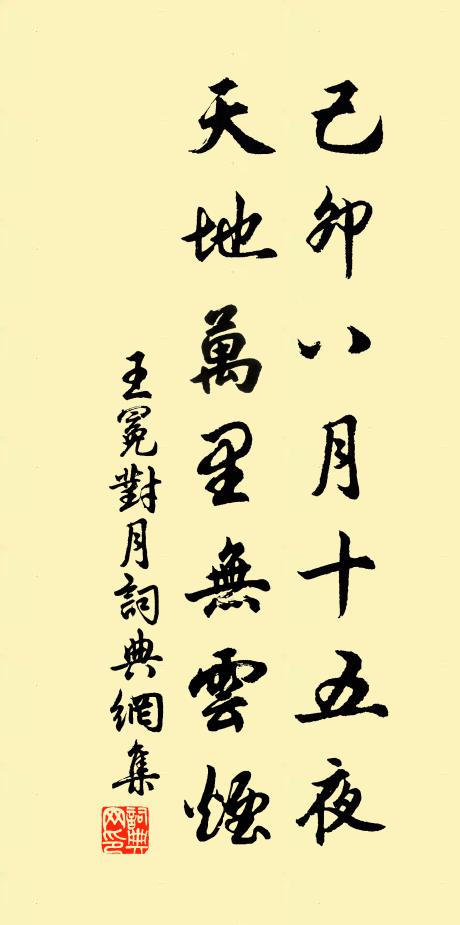 己卯八月十五夜
天地萬里無雲煙
王冕對月詞典網集
詞典網印